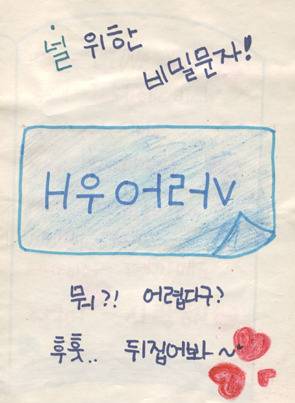 널 위한
비밀문자!
H우어러V
뭐?! 어렵다구?
후훗.. 뒤집어봐~